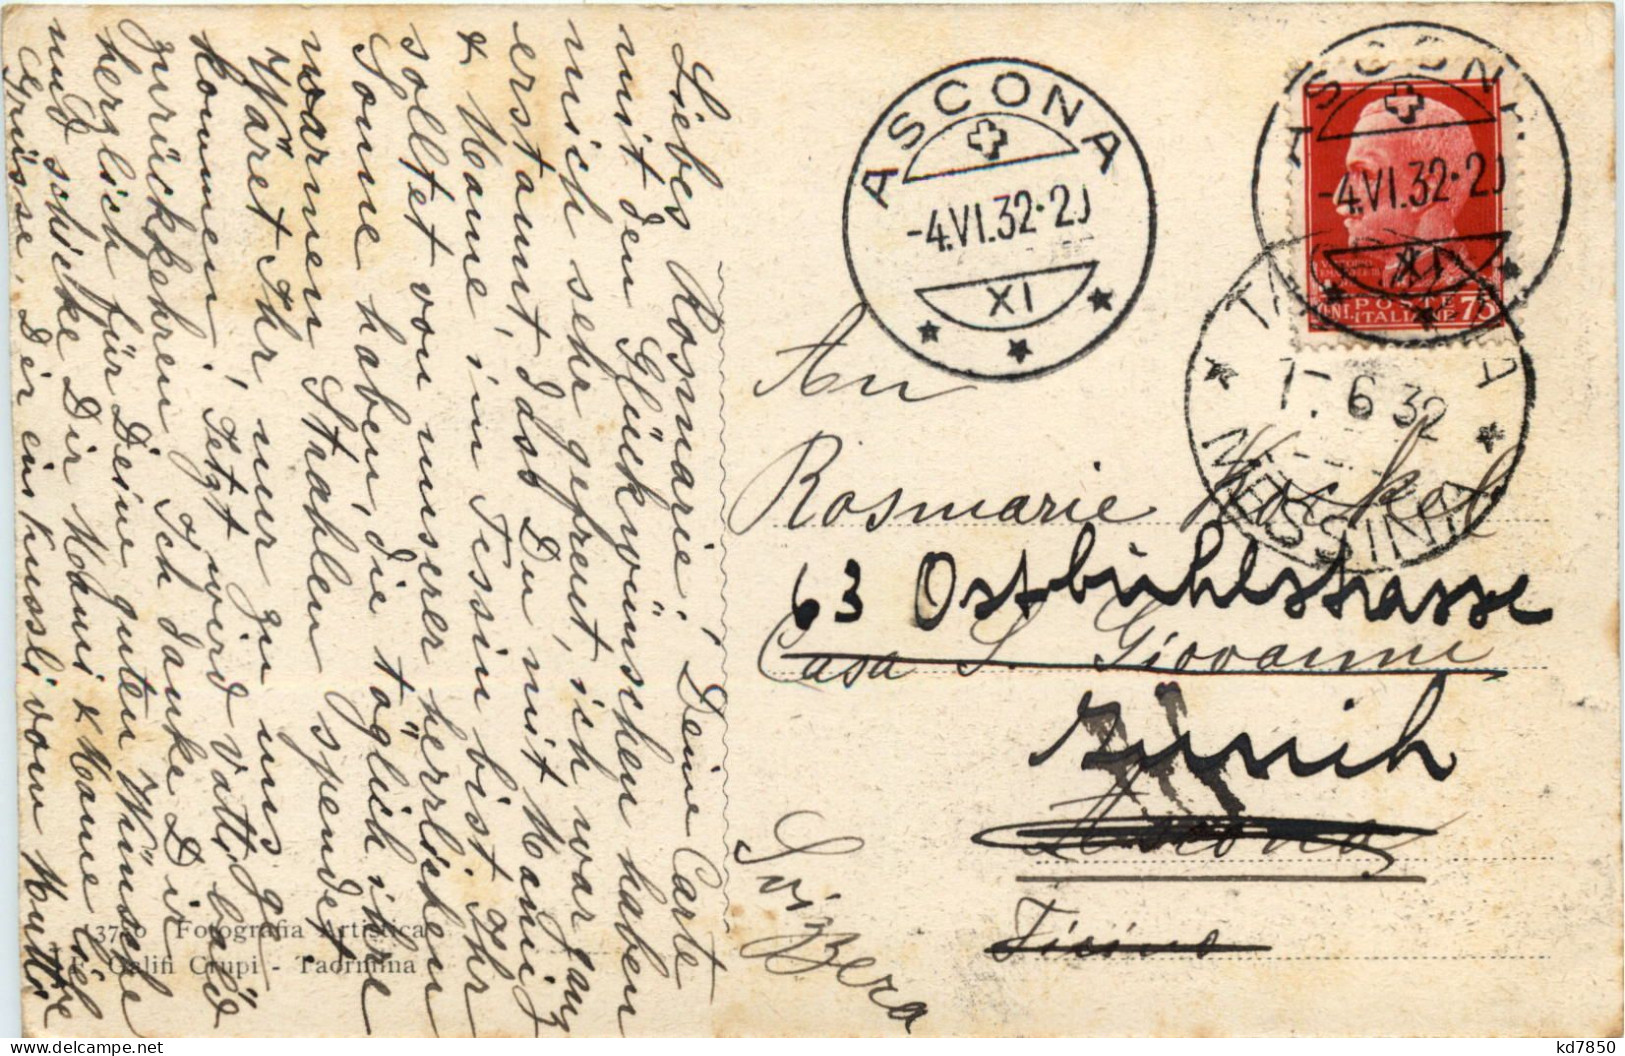 Liebes Rosmarie! Deine Carte
mit den Glückwünschen haben
mich sehr gefreut, ich war ganz
erstaunt, dass Du mit Mami
& Mamé im Tessin bist. Ihr
solltet von unserer herrlichen
Sonne haben, die täglich ihre
warmen Strahlen spendet.
Wäret Ihr nur zu uns ge
kommen! Jetzt wird Vatti bald
zurückkehren. Ich danke Dir
herzlich für Deine guten Wünsche
und schicke Dir Mami & Mamé liebe
Grüsse. Dir ein Kussli vom Mutti
3780 Fotografia Artistica
Galifi Crupi - Taormina
ASCONA
-4.VI.32-20
XI
ASCONA
-4.VI.32-20
XI
POSTE
ITALIANE
75
1.6.32
MESSINA
An
Rosmarie
63 Ostbühlstrasse
Casa S. Giovanni
Zürich
Ascona
Ticino
Svizzera
kd7850